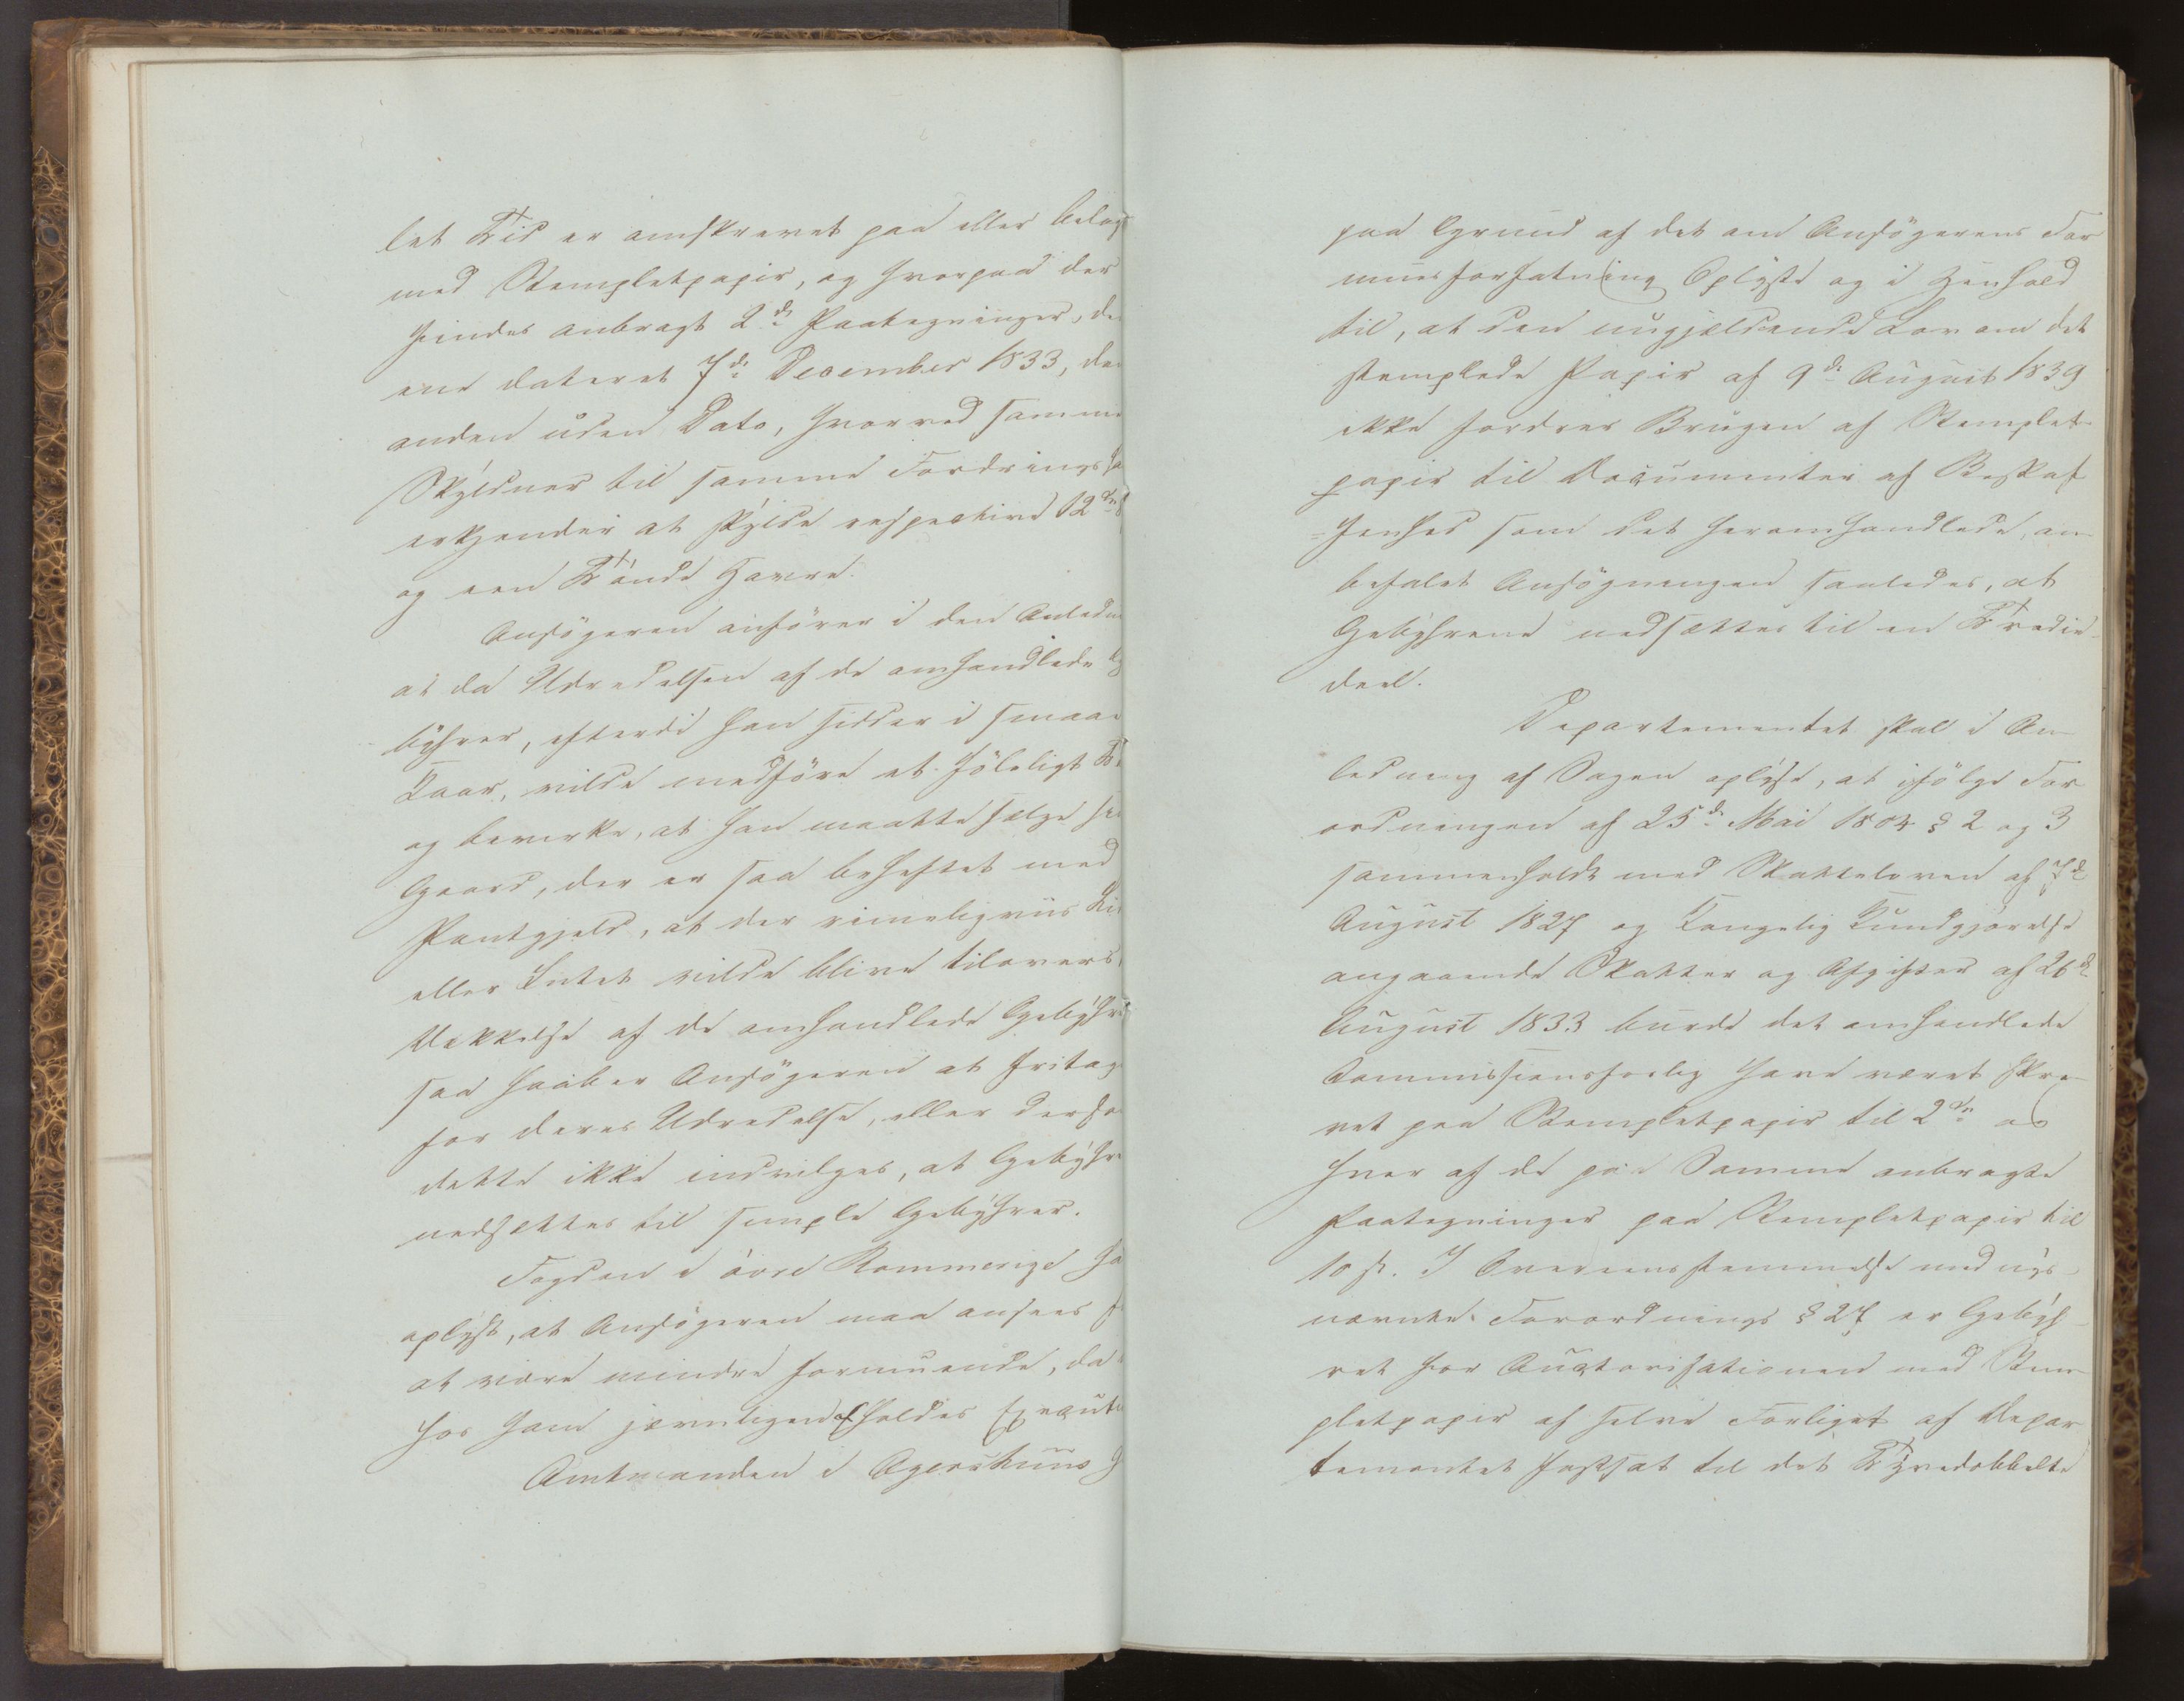 let Tid er omskrevet paa eller belagt
med Stempletpapir, og hvorpaa der
findes anbragt 2de Paategninger, de
ene dateret 7de December 1833, de
anden uden Dato, hvorved samme
Skyldner til samme Fordrings
erkjender at skylde respective 12
og een Tønde Havre.
Ansøgeren anfører i den Anledn
at da Udredelsen af de omhandlede
byhrer, efterdi han sidder i smaae
Kaar, vilde medføre et føleligt
og bevirke, at han maatte sælge
Gaard, der er saa beheftet med
Pantgjeld, at der rimeligviis
eller Intet vilde blive tilovers
Dækkelse af de omhandlede Gebyhr
saa haaber Ansøgeren at fritag
for deres Udredelse, eller dersom
dette ikke indvilges, at Gebyhr
nedsættes til simple Gebyhrer.
Fogden i øvre Rommerige ha
oplyst, at Ansøgeren maa ansees
at være mindre formuende, da
hos ham jevnligen afholdes Execut
Amtmanden i Agershuus
paa Grund af det om Ansøgerens For
muesforfatning Oplyste og i Henhold
til, at den nugjældende Lov om det
stemplede Papir af 9de August 1839
ikke fordrer Brugen af Stemplet-
papir til Documenter af Beskaf
=fenhed som det heromhandlede, an-
befalet Ansøgningen saaledes, at
Gebyhrene nedsættes til en Tredie-
deel.
Departementet skal i An-
ledning af Sagen oplyse, at ifølge For
ordningen af 25de Mai 1804 § 2 og 3
sammenholdt med Skatteloven af 7de
August 1827 og Kongelig Kundgjørelse
angaaende Skatter og Afgifter af 26de
August 1833 burde det omhandlede
Commissionsforlig have været skre-
vet paa Stempletpapir til 2 og
hver af de paa Samme anbragte
Paategninger paa Stempletpapir til
10 sk. I Overeensstemmelse med nys-
nævnte Forordnings § 27 er Gebyh-
ret for Auctorisationen med Stem-
pletpapir af selve Forliget af Depar
tementet fastsat til det Tyvedobbelte